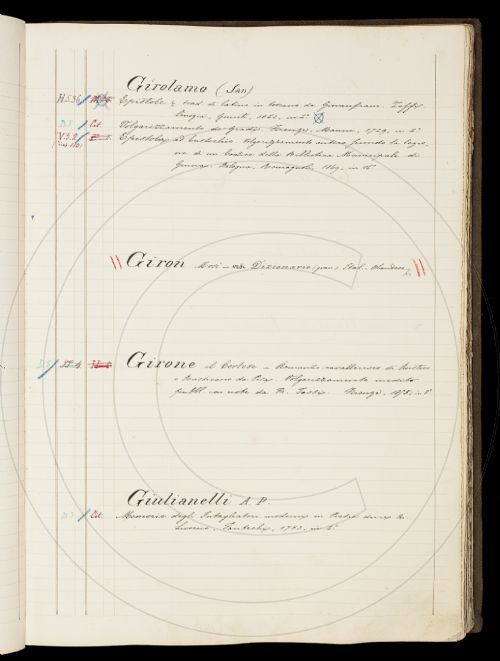 Girolamo (San)
H.5.36. Epistole trad. di latino in toscano da Giovanfranc. Zoffi.
Venezia, Giunti, 1562, in 8°
D.5 Cit. Volgarizzamento dei Gradi. Firenze, Manni, 1729, in 4°
V.3.2 Epistola ad Eustochio. Volgarizzamento antico secondo la lezio-
ne di un Codice della Biblioteca Municipale di
Genova. Bologna, Romagnoli, 1869, in 16°
Giron Mosè - vedi Dizionario (gran) Ital. Olandese
Girone il Cortese - Romanzo cavalleresco di Rustico
o Rusticiano da Pisa. Volgarizzamento inedito
pubbl. con note da Fr. Tassi. Firenze, in 8°
Giulianelli A. P.
D.5 Cit. Memorie degli Intagliatori moderni in Pietre dure &.
Livorno, Fantechi, 1753, in 4°